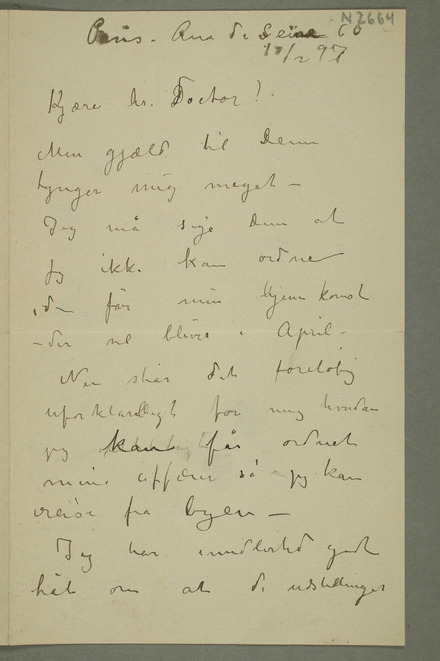 N 2664
Paris - Rue de Seine 60
/2 97
Kjære hr. Doctor!
Min gjæld til Dem
tynger mig meget –
Jeg må sige Dem at
jeg ikke kan ordne
den før min hjemkomst
– der vel bliver i April –
Nu står det foreløbig
uforklarligt for mig hvordan
jeg kan får ordnet
mine affærer så jeg kan
reise fra byen –
Jeg har imidlertid godt
håb om at de udstillinger